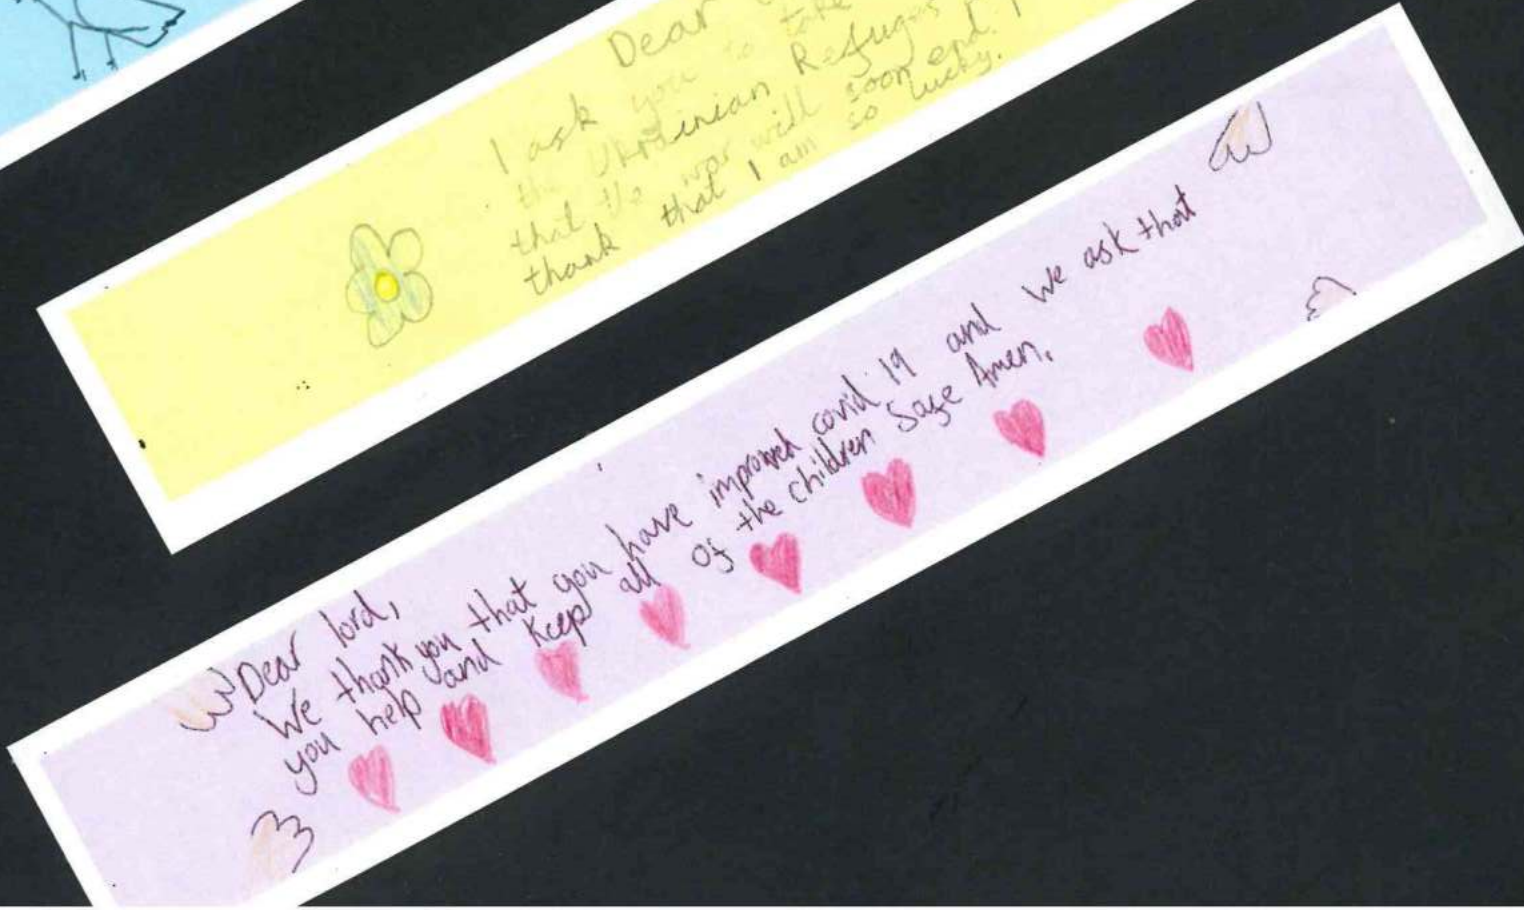 Dear
I ask you to take
the Ukrainian Refugas
that the war will soon end. I
thank that I am so lucky.
Dear lord,
We thank you that you have improved covid 19 and we ask that
you help and keep all of the children Safe Amen.